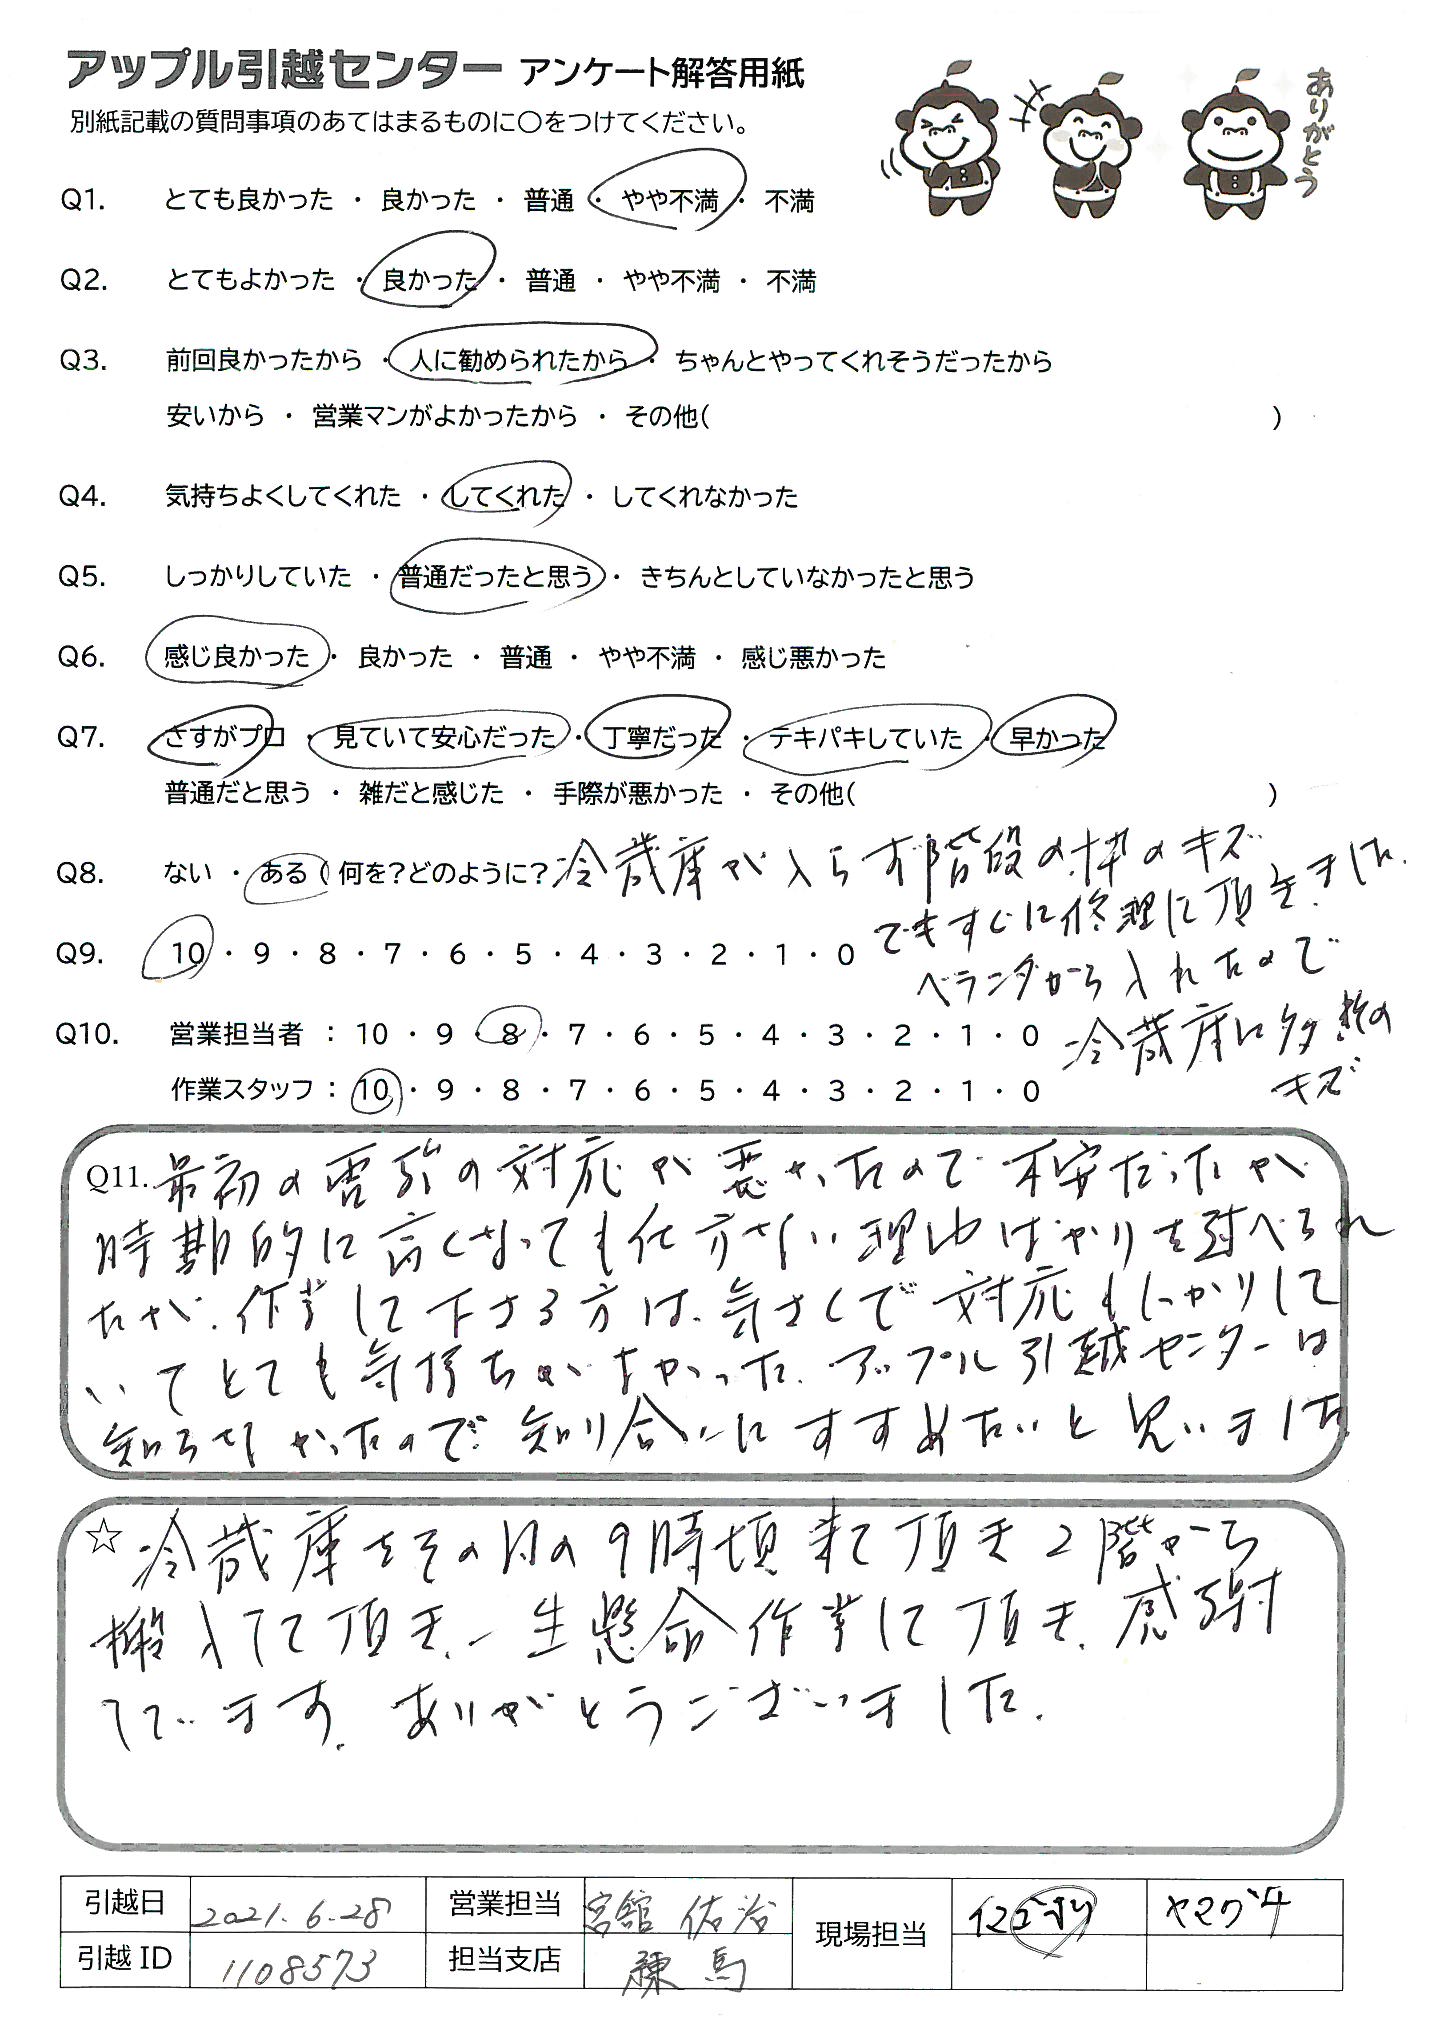 アップル引越センター アンケート解答用紙
別紙記載の質問事項のあてはまるものに〇をつけてください。
ありがとう
Q1. とても良かった ・ 良かった ・ 普通 ・ やや不満 ・ 不満
Q2. とてもよかった ・ 良かった ・ 普通 ・ やや不満 ・ 不満
Q3. 前回良かったから ・ 人に勧められたから ・ ちゃんとやってくれそうだったから
安いから ・ 営業マンがよかったから ・ その他( )
Q4. 気持ちよくしてくれた ・ してくれた ・ してくれなかった
Q5. しっかりしていた ・ 普通だったと思う ・ きちんとしていなかったと思う
Q6. 感じ良かった ・ 良かった ・ 普通 ・ やや不満 ・ 感じ悪かった
Q7. さすがプロ ・ 見ていて安心だった ・ 丁寧だった ・ テキパキしていた ・ 早かった
普通だと思う ・ 雑だと感じた ・ 手際が悪かった ・ その他( )
Q8. ない ・ ある ( 何を?どのように? 冷蔵庫が入らず階段の枠のキズ
でもすぐに修理に頂きました.
Q9. 10 ・ 9 ・ 8 ・ 7 ・ 6 ・ 5 ・ 4 ・ 3 ・ 2 ・ 1 ・ 0
ベランダから入れたので
Q10. 営業担当者 : 10 ・ 9 ・ 8 ・ 7 ・ 6 ・ 5 ・ 4 ・ 3 ・ 2 ・ 1 ・ 0
冷蔵庫に多数の
作業スタッフ : 10 ・ 9 ・ 8 ・ 7 ・ 6 ・ 5 ・ 4 ・ 3 ・ 2 ・ 1 ・ 0
キズ
Q11. 最初の電話の対応が悪かったので不安だったが
時期的に高くなっても仕方ない理由ばかりを並べられ
たが、作業して下さる方は、気さくで対応もしっかりして
いてとても気持ちがよかった. アップル引越センターは
知らなかったので、知り合いにすすめたいと思いました
☆ 冷蔵庫をその日の9時頃来て頂き2階から
搬入して頂き、一生懸命作業して頂き、感謝
しています. ありがとうございました.
引越日 2021.6.28 営業担当 宮舘 佑治 現場担当 ヤマグチ
引越ID 1108573 担当支店 練馬